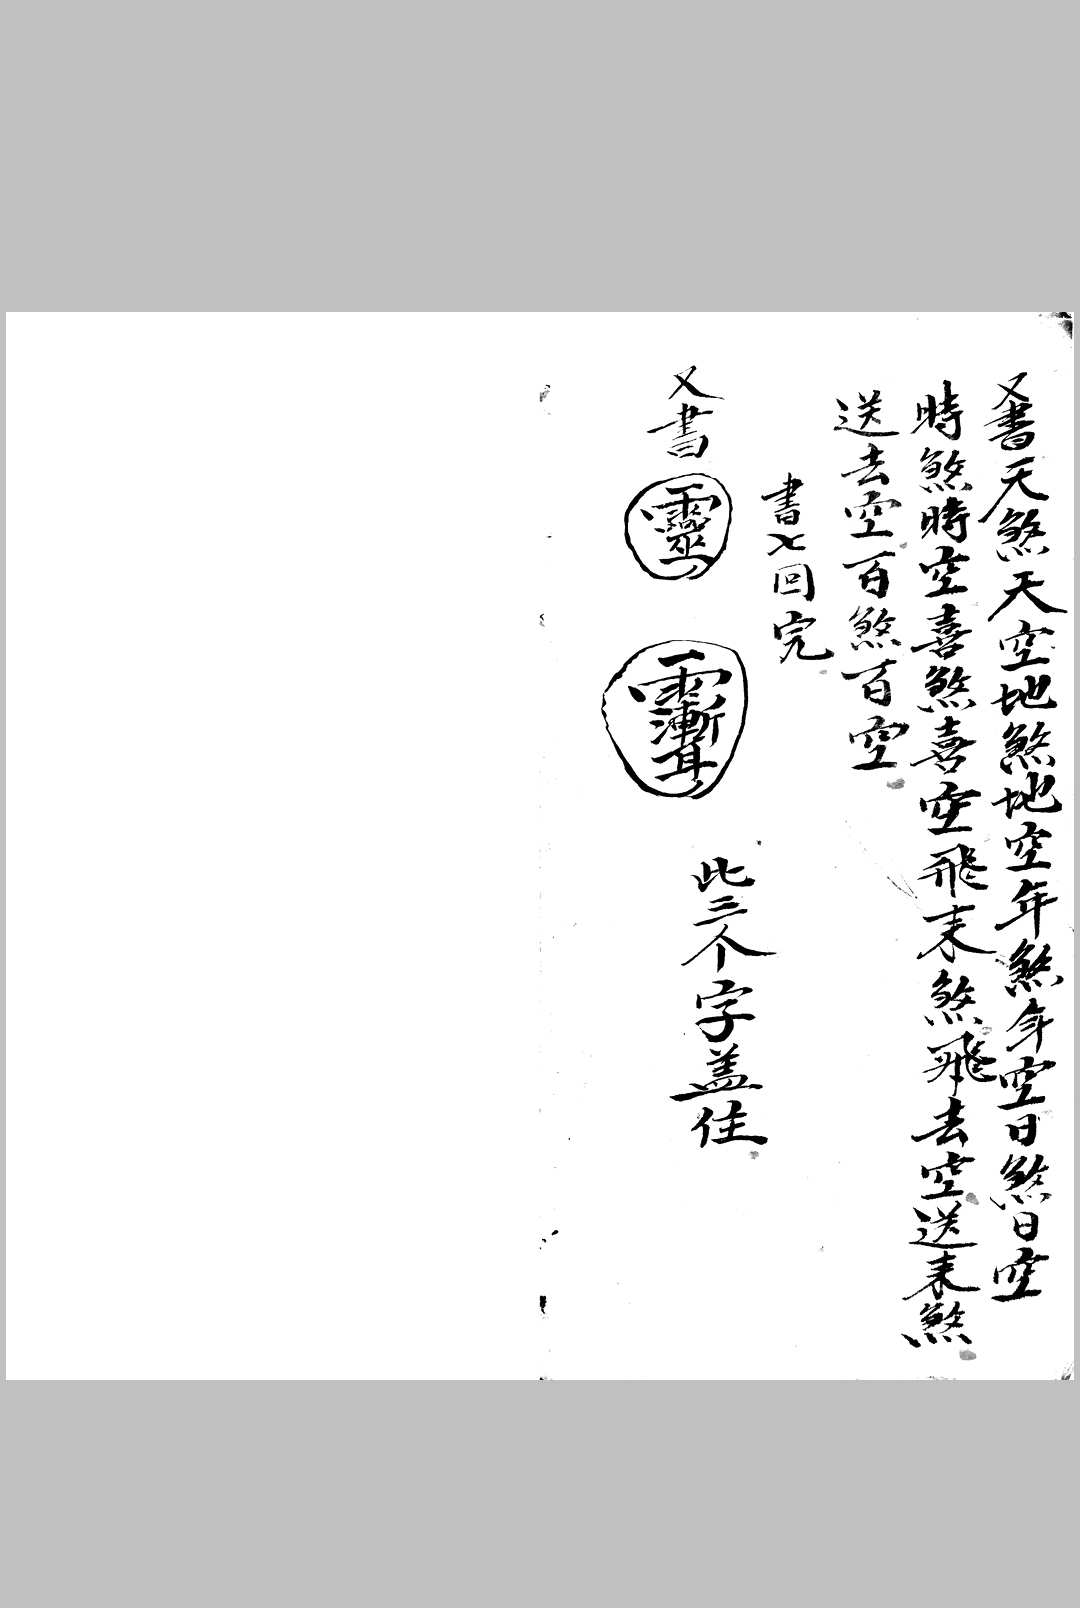 又書天煞天空地煞地空年煞年空日煞日空
時煞時空喜煞喜空飛来煞飛去空送来煞
送去空百煞百空
書七回完
又書
此三个字盖住